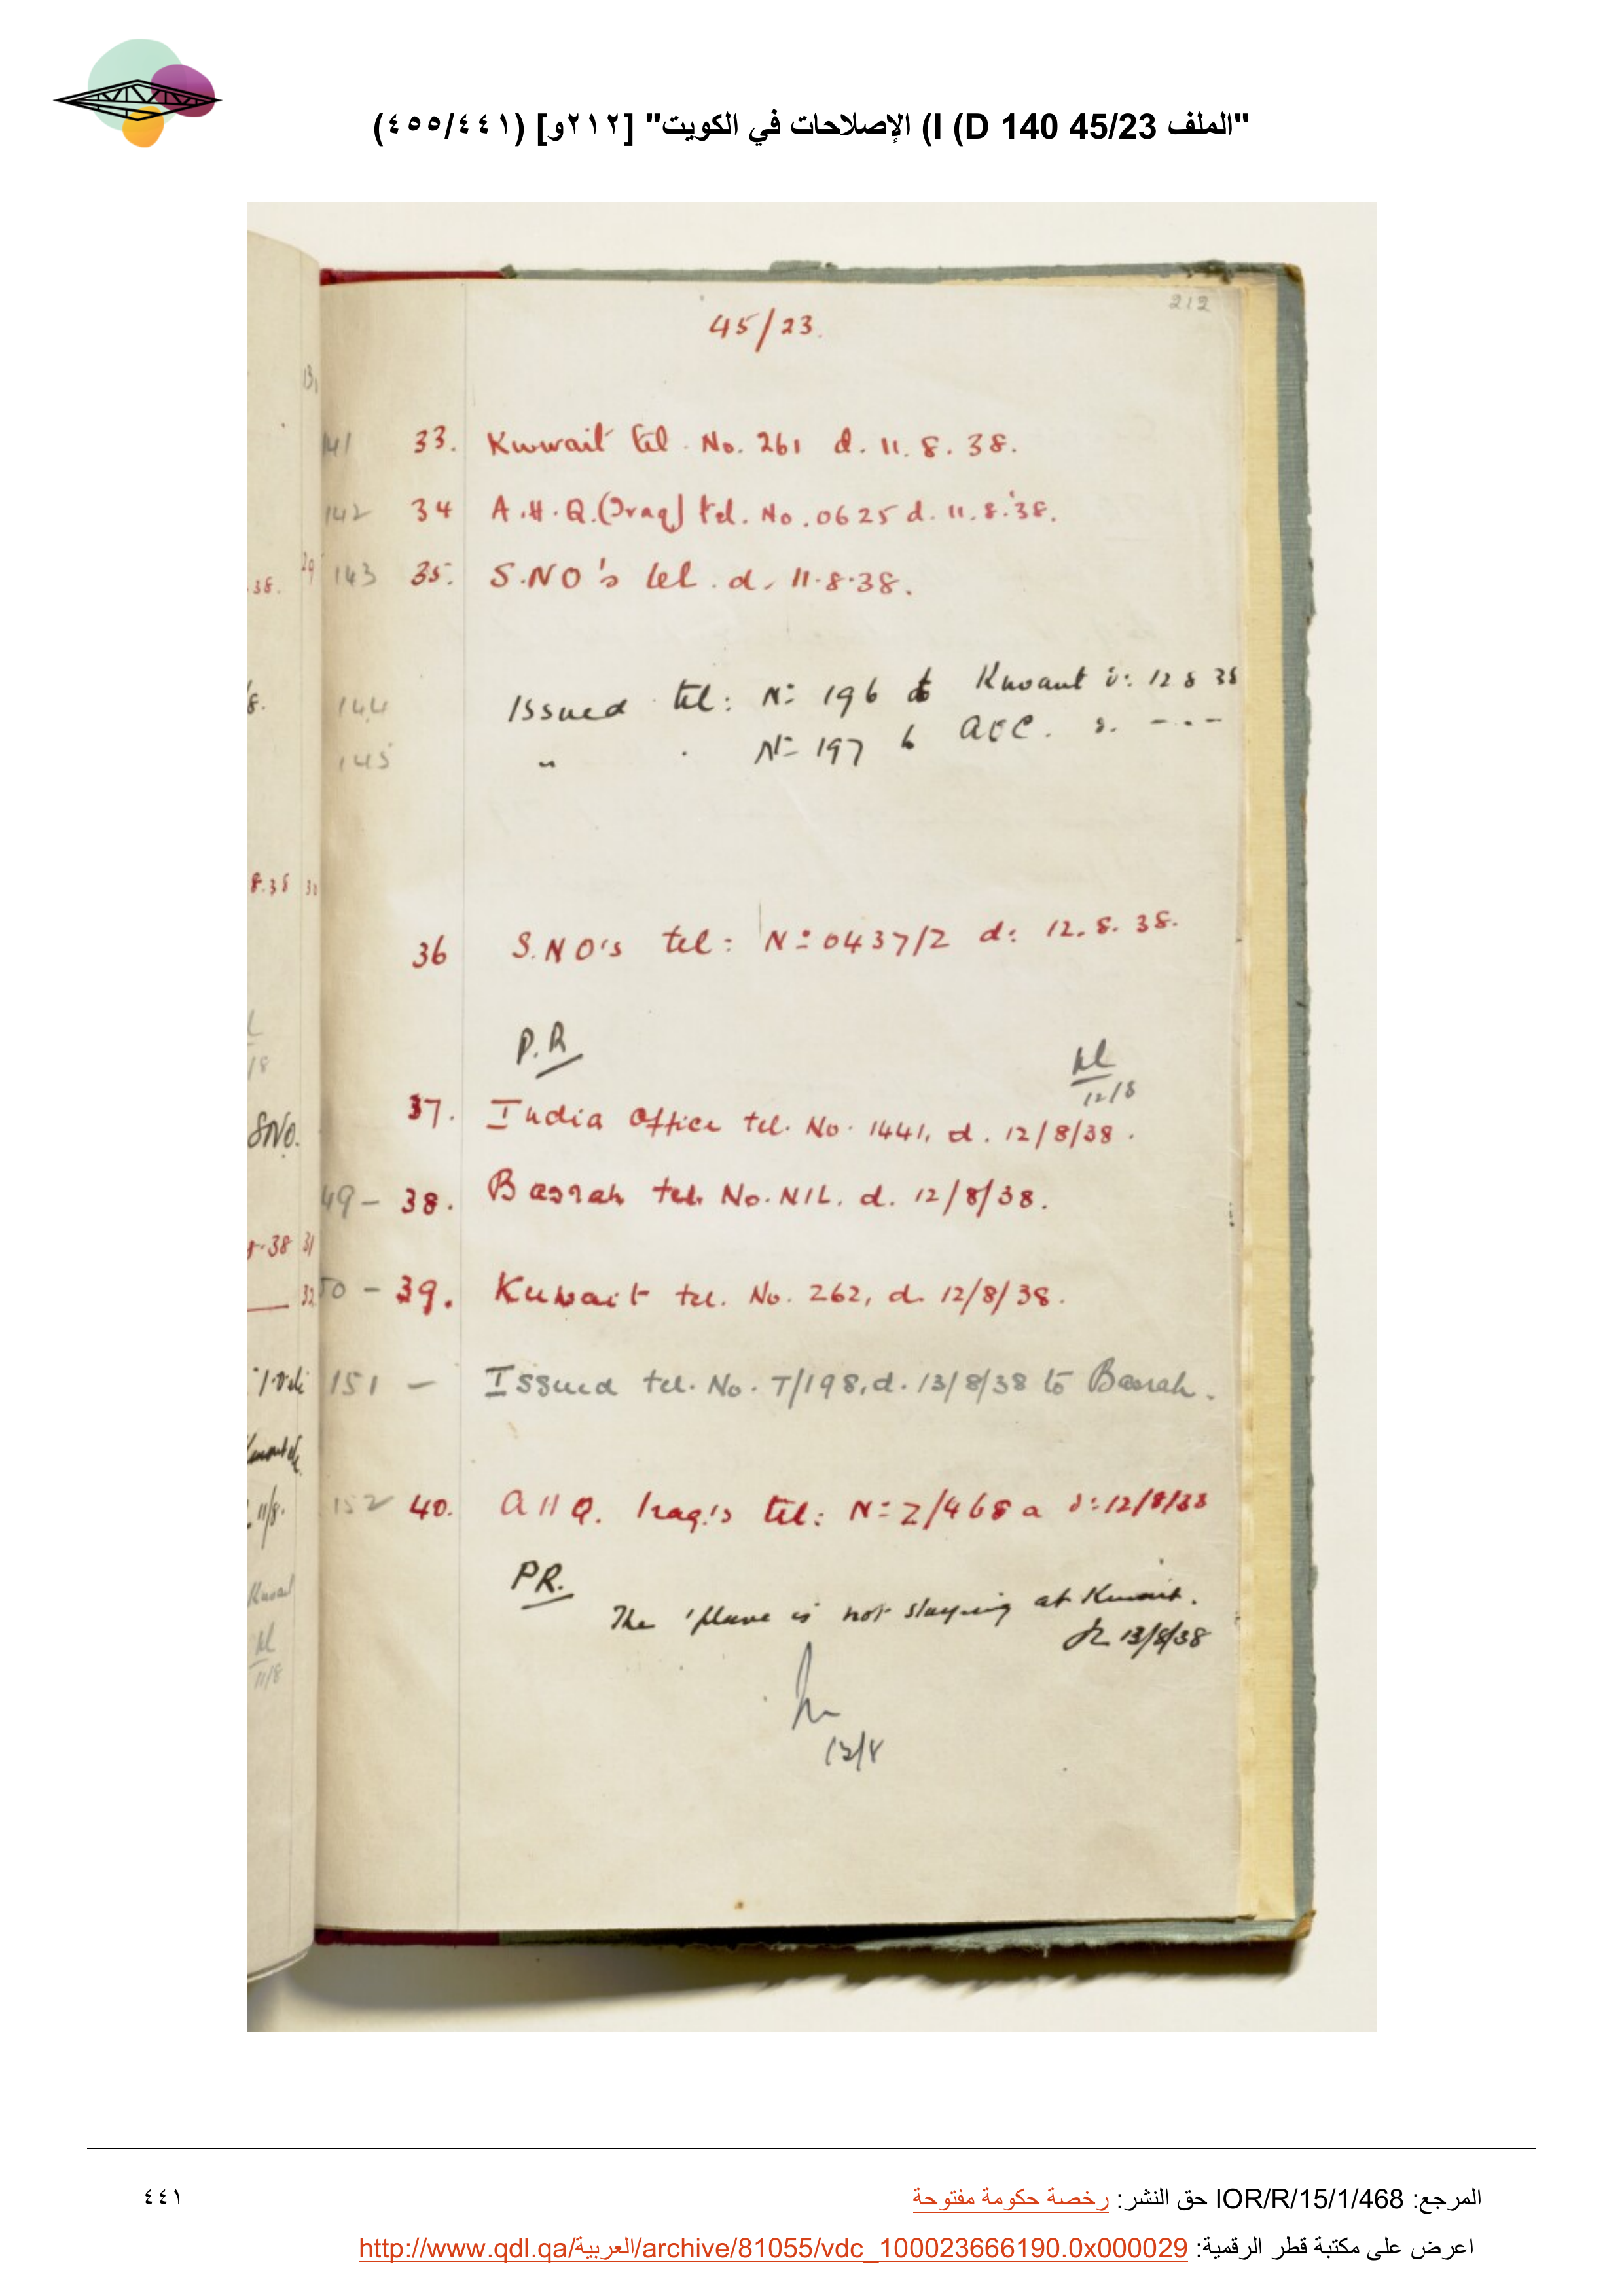 "الملف 45/23 I (D 140) الإصلاحات في الكويت" [٢١٢و] (٤٥٥/٤٤١)
212
45/23.
141 33. Kuwait tel. No. 261 d. 11.8.38.
142 34 A.H.Q.(Iraq) tel. No. 0625 d. 11.8.38.
143 35. S.NO's tel. d. 11.8.38.
144 Issued tel: Nº 196 to Kuwait d: 12 8 38
145 " " Nº 197 to AOC. d. -.-
36 S.NO's tel: Nº 0437/2 d: 12.8.38.
P.R
12/8
37. India Office tel. No. 1441, d. 12/8/38.
49 - 38. Basrah tel. No. NIL. d. 12/8/38.
50 - 39. Kuwait tel. No. 262, d. 12/8/38.
151 - Issued tel. No. T/198, d. 13/8/38 to Basrah.
152 40. AHQ. Iraq's tel: Nº Z/468 a d: 12/8/38
PR.
The 'plane is not staying at Kuwait.
13/8/38
13/8
المرجع: IOR/R/15/1/468 حق النشر: رخصة حكومة مفتوحة
٤٤١
اعرض على مكتبة قطر الرقمية: http://www.qdl.qa/العربية/archive/81055/vdc_100023666190.0x000029